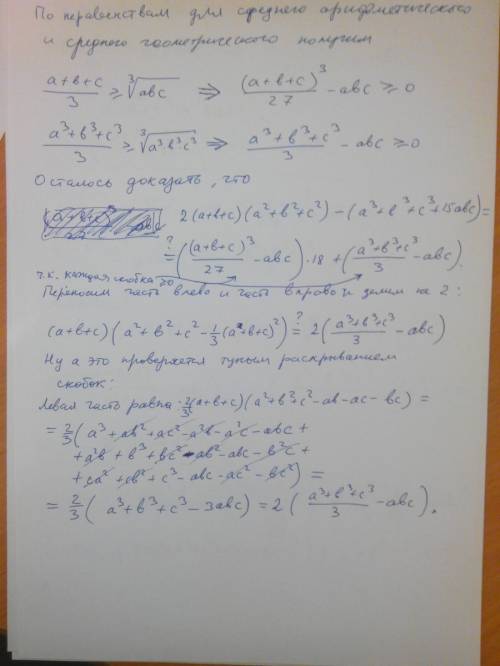 По неравенствам для среднего арифметического
и среднего геометрического получим
(a+b+c)/3 ≥ ∛(abc) ⇒ (a+b+c)³/27 − abc ≥ 0
(a³+b³+c³)/3 ≥ ∛(a³·b³c³) ⇒ (a³+b³+c³)/3 − abc ≥ 0
Осталось доказать, что
2(a+b+c)(a²+b²+c²) − (a³+b³+c³+15abc) =
?= ((a+b+c)³/27 − abc)·18 + ((a³+b³+c³)/3 − abc).
т.к. каждая скобка ≥0
Переносим часть влево и часть вправо и делим на 2:
(a+b+c)(a²+b²+c² − 1/3(a+b+c)²) ?= 2((a³+b³+c³)/3 − abc)
Ну а это проверяется тупым раскрыванием
скобок:
Левая часть равна: 2/3(a+b+c)(a²+b²+c²−ab−ac−bc) =
= 2/3(a³+ab²+ac²−a²b−a²c−abc+
+a²b+b³+bc²−ab²−abc−b²c+
+ca²+cb²+c³−abc−ac²−bc²) =
= 2/3(a³+b³+c³−3abc) = 2((a³+b³+c³)/3 − abc).